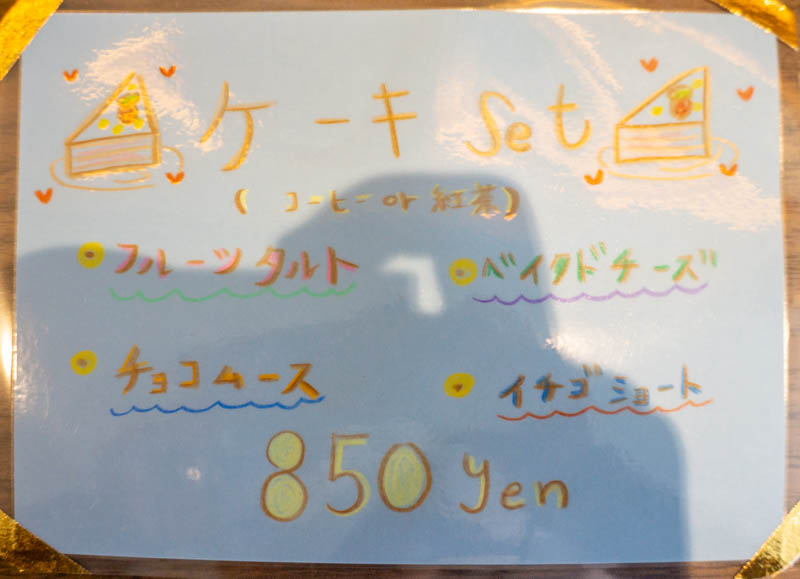 ケーキ Set
( コーヒー or 紅茶)
フルーツタルト
ベイクドチーズ
チョコムース
イチゴショート
850 yen